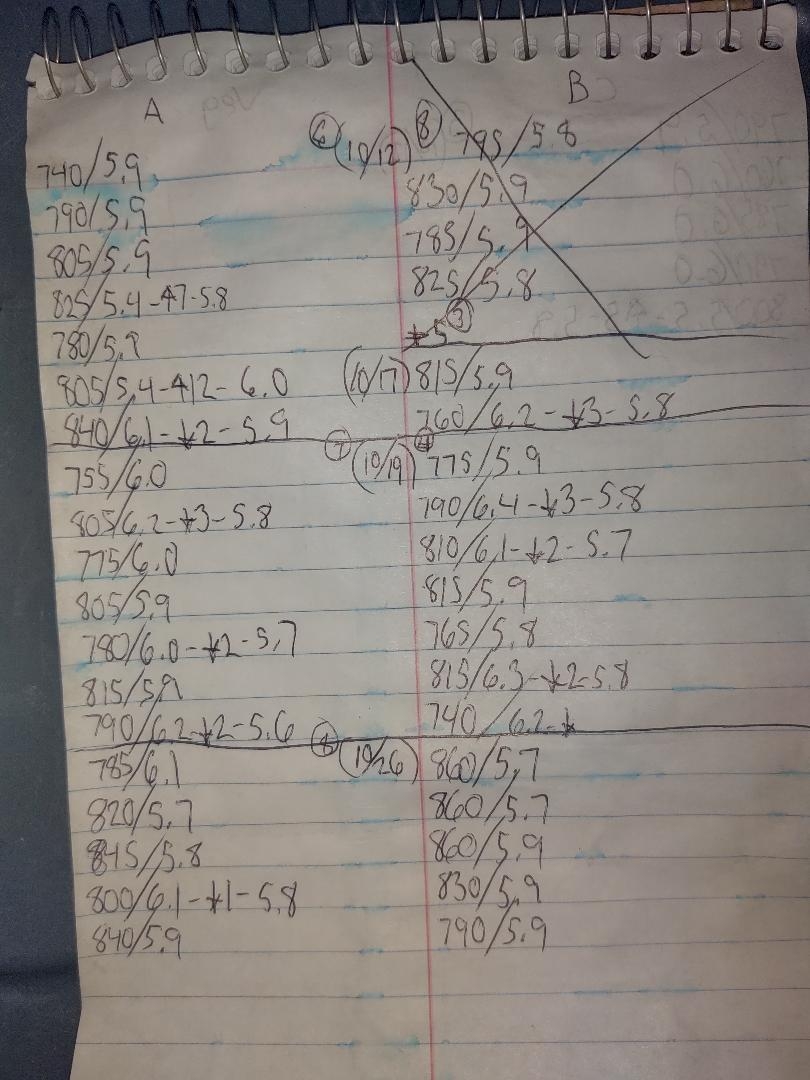 A
740/5.9
790/5.9
805/5.9
825/5.4-↑7-5.8
780/5.9
805/5.4-↑12-6.0
840/6.1-↓2-5.9
755/6.0
805/6.2-↓3-5.8
775/6.0
805/5.9
780/6.0-↓2-5.7
815/5.9
790/6.2-↓2-5.6
785/6.1
820/5.7
845/5.8
800/6.1-↓1-5.8
840/5.9
B
⑥ (10/12) ⑧ 795/5.8
830/5.9
785/5.9
825/5.8
③
(10/17) 815/5.9
760/6.2-↓3-5.8
⑦ (10/19) ④ 775/5.9
790/6.4-↓3-5.8
810/6.1-↓2-5.7
815/5.9
765/5.8
815/6.3-↓2-5.8
740/6.2-↓
(10/26) 860/5.7
860/5.7
860/5.9
830/5.9
790/5.9